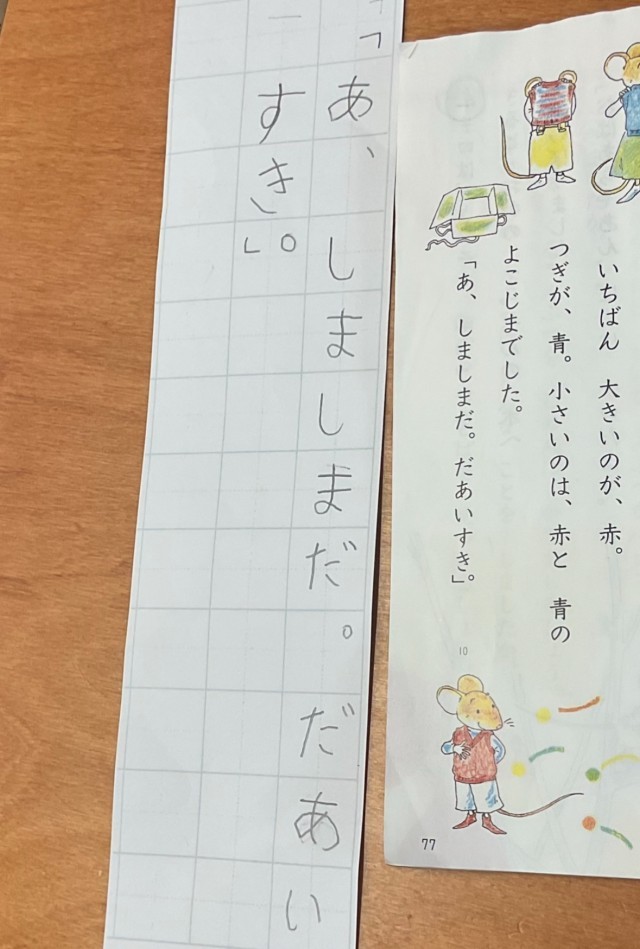 いちばん 大きいのが、赤。
つぎが、青。小さいのは、赤と 青の
よこじまでした。
「あ、しましまだ。だあいすき」。
10
77
「あ、しましまだ。だあい
すき」。